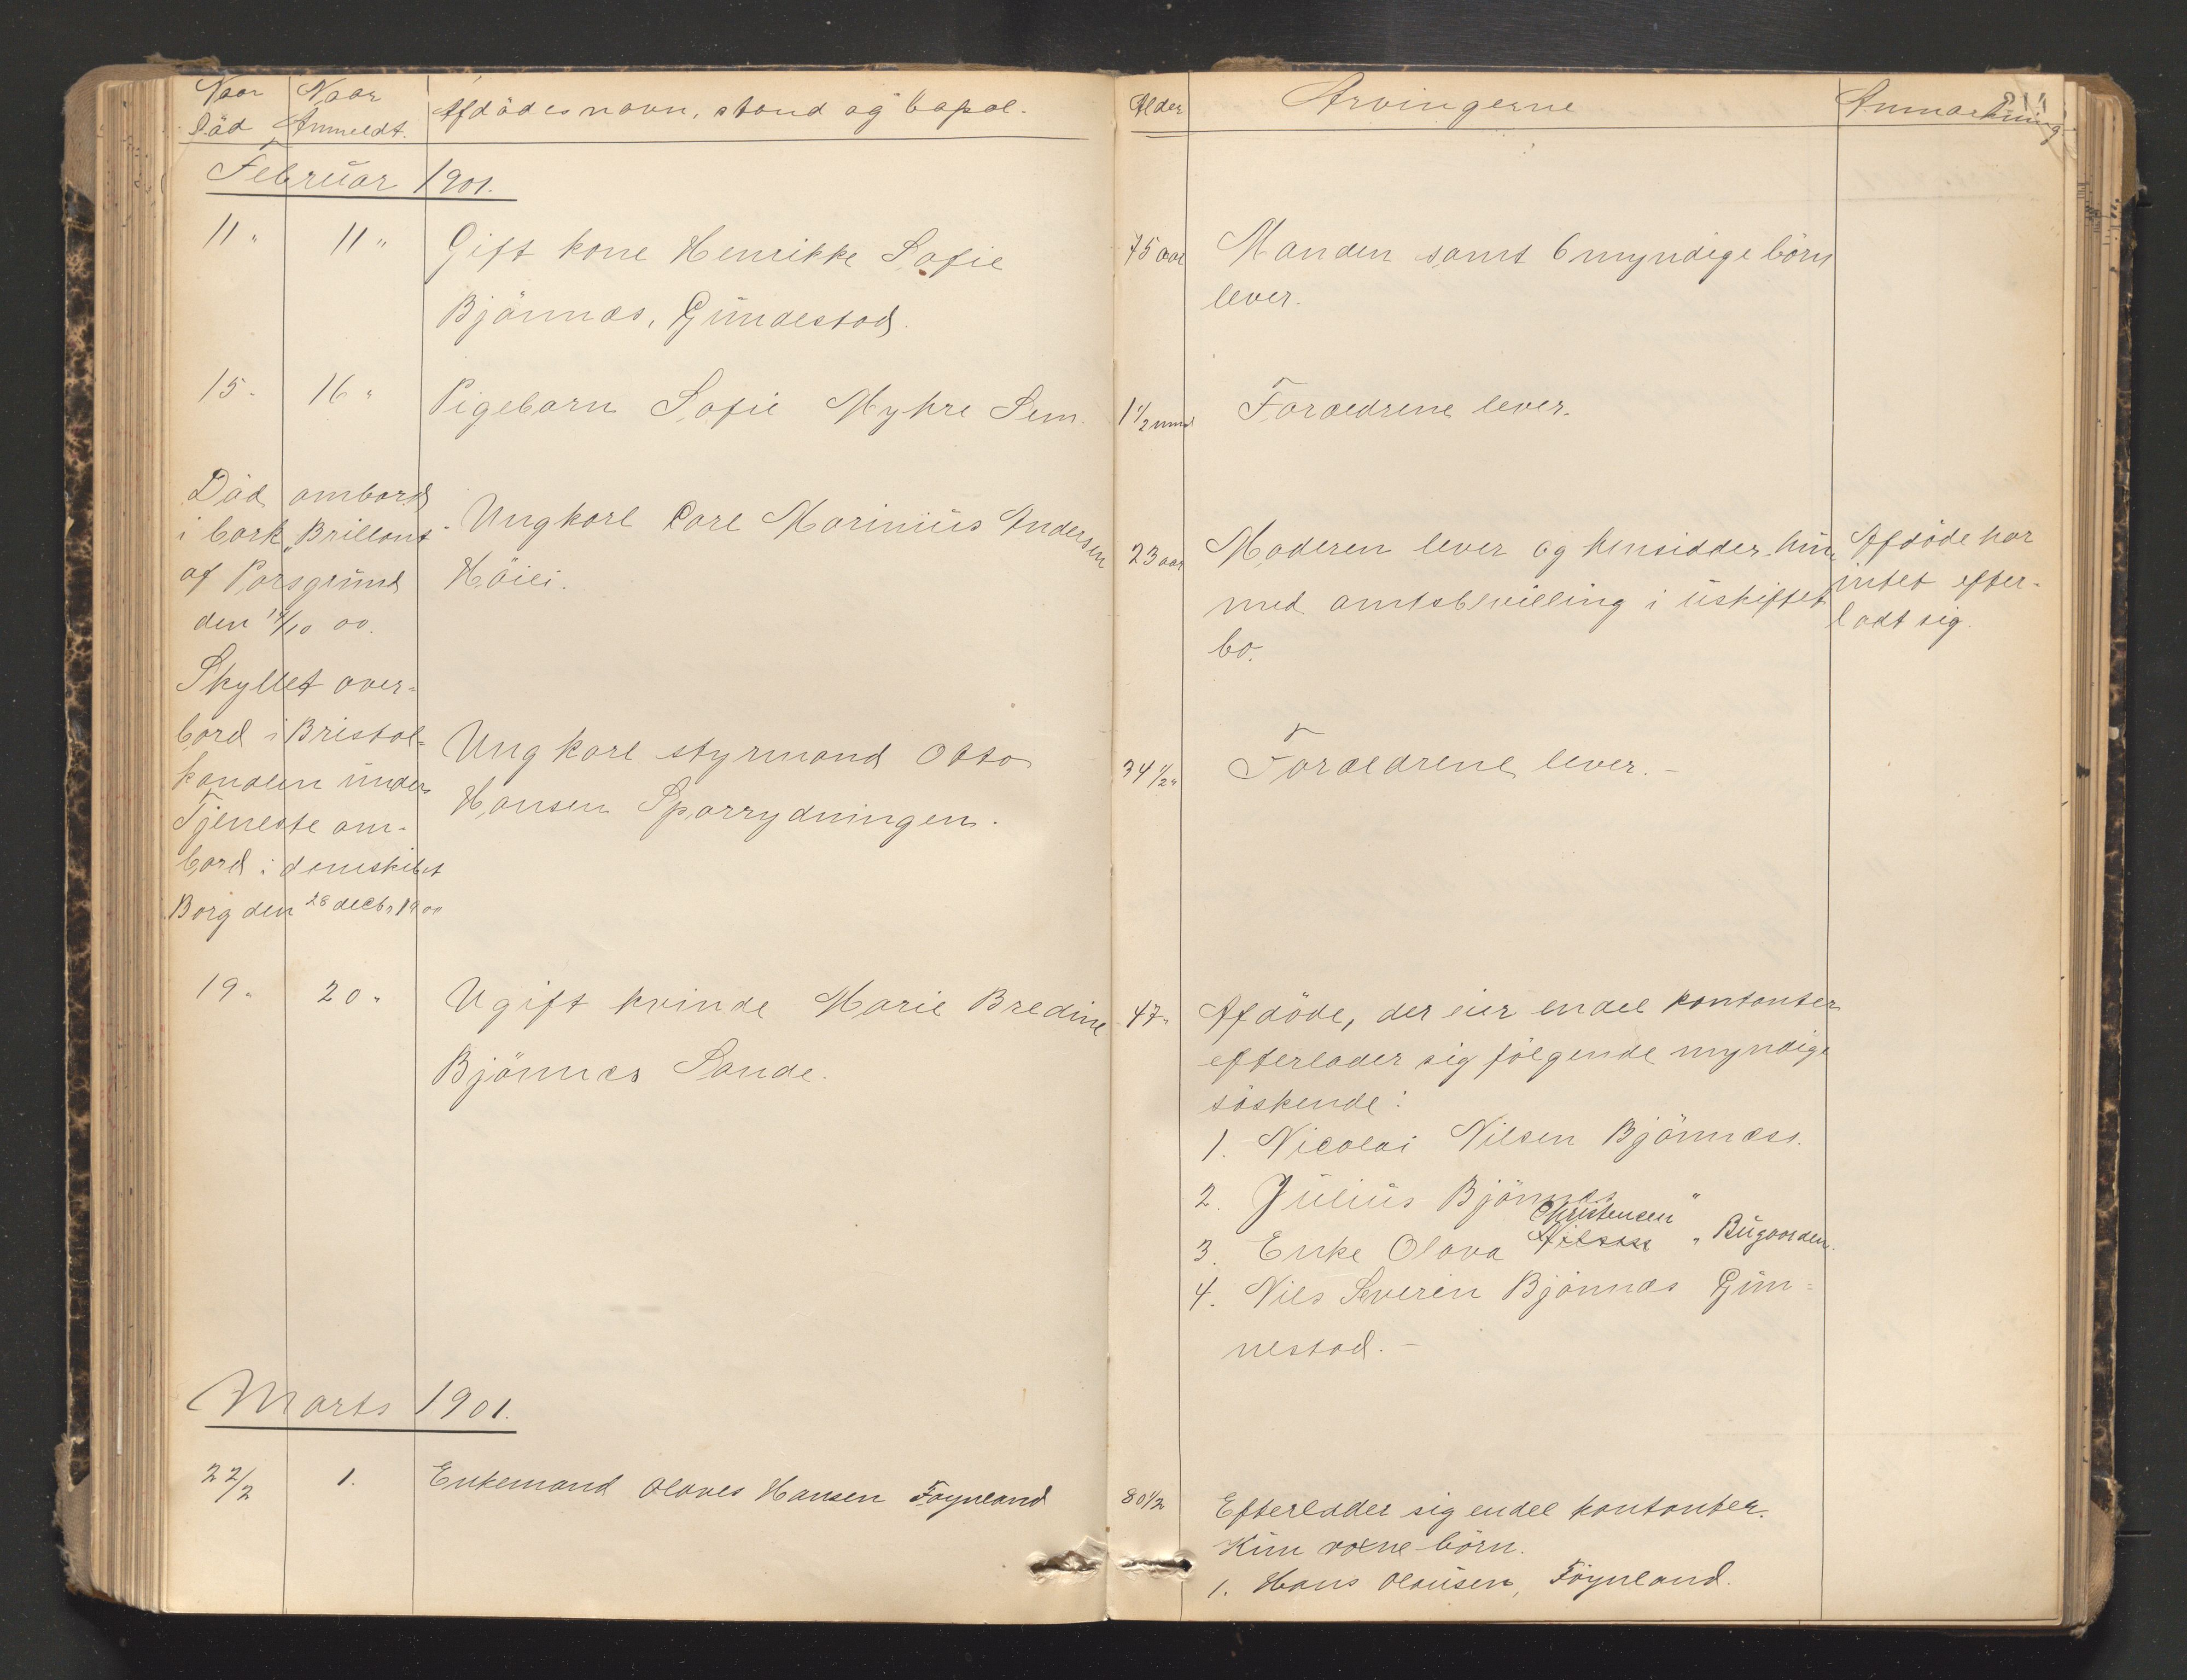 Naar Naar Afdödes navn, stand og bopæl. Alder Arvingerne Anmærkning
Död Anmeldt.
Februar 1901.
11 " 11 " Gift kone Henrikke Sofie 75 aar Manden samt 6 myndige börn
Bjönnæs, Gunnestad. lever.
15 " 16 " Pigebarn Sofie Myhre Sem. 1 1/2 mnd Forældrene lever.
Död ombord
i bark "Brillant"
af Porsgrund
den /10 00.
Ungkarl Carl Marinius Andersen
Höiei.
23 aar Moderen lever og hensidder hun
med amtsbevilling i uskiftet
bo.
Afdöde har
intet efter-
ladt sig.
Skyllet over-
bord i Bristol-
kanalen under
Tjeneste om-
bord i dampskibet
Borg den 28 decbr 1900
Ungkarl styrmand Otto
Hansen Sporrydningen.
34 1/2 " Forældrene lever. -
19 " 20 " Ugift kvinde Marie Bredine
Bjönnæs Sande.
47 " Afdöde, der eier endel kontanter
efterlader sig fölgende myndige
söskende:
1. Nicolai Nilsen Bjönnæss.
2. Julius Bjönnæs "
Christensen
3. Enke Olava Nilsen " Bugaarden.
4. Nils Severin Bjönnæs Gun-
nestad. -
Marts 1901.
22/2 1. Enkemand Olaves Hansen Föynland
80 1/2 Efterlader sig endel kontanter.
Kun voxne börn.
1. Hans Olausen, Föynland.